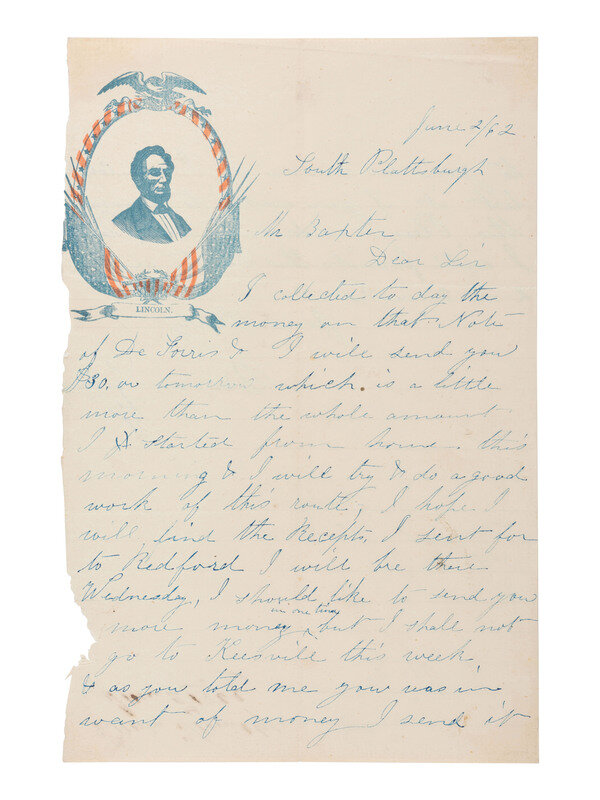 June 2/62
South Plattsburgh
Mr Baxter
Dear Sir
I collected to day the
money on that Note
of De Forris & I will send you
$30.00 tomorrow which is a little
more than the whole amount
I started from home this
morning & I will try & do a good
work of this route, I hope I
will find the Recepts, I sent for
to Redford I will be there
Wednesday, I should like to send you
more money but I shall not
go to Keesvill this week,
& as you told me you was in
want of money I send it
LINCOLN.